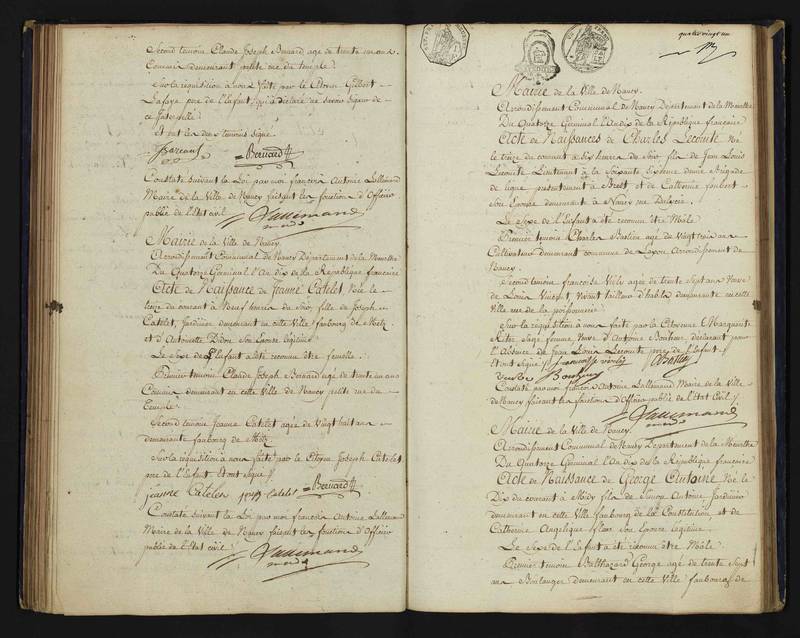 Second témoin Claude Joseph Bernard agé de trente un ans.
Commis demeurant petite rue du temple.
Sur la réquisition à nous faite par le Citoyen Gilbert
pere de l'Enfant, qui a déclaré ne savoir signer de
ce Interpellé
et ont les deux temoins signé
Bernard
Constaté suivant la Loi par moi françois Antoine Lallemand
Maire de la Ville de Nancy faisant les fonctions d'Officier
public de l'Etat civil.
Lallemand
Mairie de la Ville de Nancy.
Arrondissement Communal de Nancy Département de la Meurthe
Du Quatorze Germinal l'An dix de la République française
Acte de Naissance de Jeanne Catelet, Née le
treize du courant à Neuf heures du Soir fille de Joseph
Catelet, Jardinier demeurant en cette Ville faubourg de Metz
et d'Antoinette Didon son Epouse légitime
Le Sexe de l'Enfant a été reconnu être femelle.
Premier temoin Claude Joseph Bernard agé de trente un ans
Commis demeurant en cette Ville de Nancy petite rue du
Temple
Second temoin Jeanne Catelet agée de Vingt huit ans
demeurante faubourg de Metz.
Sur la réquisition à nous faite par le Citoyen Joseph Catelet
pere de l'Enfant et ont signé
jeanne Catelet joseph Catelet Bernard
Constaté suivant la Loi par moi françois Antoine Lallemand
Maire de la Ville de Nancy faisant les fonctions d'Officier
public de l'Etat civil.
Lallemand
quatre vingt un
Mairie de la Ville de Nancy.
Arrondissement Communal de Nancy Département de la Meurthe
Du Quatorze Germinal l'An dix de la République française
Acte de Naissances de Charles Lecomte Né
le treize du courant à Six heures du Soir fils de Jean Louis
Lecomte Lieutenant à la Soixante Sixieme demie Brigade
de ligne présentement à Brest et de Catherine
son Epouse demeurante à Nancy rue
Le Sexe de l'Enfant a été reconnu être Mâle.
Premier temoin Charles Bastien agé de Vingt trois ans
Cultivateur demeurant commune de Laxou Arrondissement de
Nancy.
Second temoin françoise agée de trente Sept ans Veuve
de Louis Vincent, Vivant tailleur d'habits demeurante en cette
Ville rue de la poissonnerie
Sur la réquisition à nous faite par la Citoyenne Marguerite
Sage femme Veuve d'Antoine déclarant pour
l'Absence de Jean Louis Lecomte pere de l'Enfant
et ont signé
Constaté par moi françois Antoine Lallemand Maire de la Ville
de Nancy faisant les fonctions d'Officier public de l'Etat Civil
Lallemand
Mairie de la Ville de Nancy.
Arrondissement Communal de Nancy Département de la Meurthe
Du Quatorze Germinal l'An dix de la République française
Acte de Naissance de George Antoine Né le
Dix du courant à Midy fils de Antoine Jardinier
demeurant en cette Ville faubourg de la Constitution et de
Catherine Angelique son Epouse légitime.
Le Sexe de l'Enfant a été reconnu être Mâle.
Premier temoin Balthazard George agé de trente Sept
ans Boulanger demeurant en cette Ville faubourg de